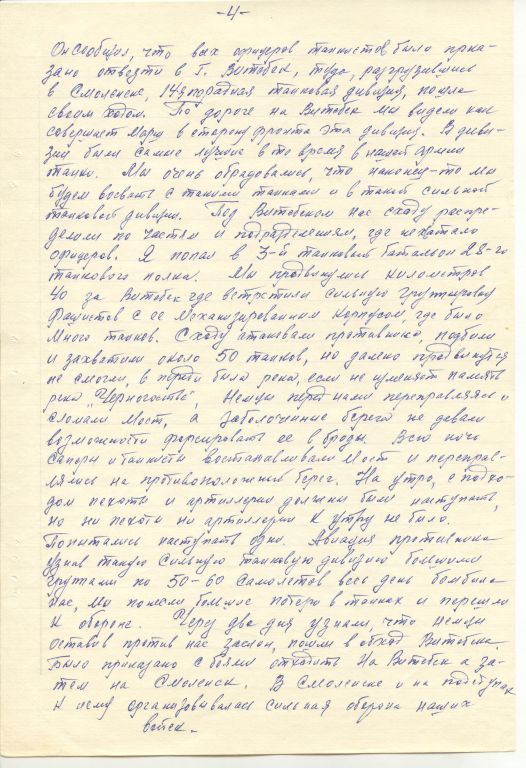 -4-
Он сообщил, что всех офицеров танкистов было прика-
зано отвезти в г. Витебск, туда, разгрузившись
в Смоленске, 14я парадная танковая дивизия, пошла
своим ходом. По дороге на Витебск мы видели как
совершает марш в сторону фронта эта дивизия. В диви-
зии были самые лучшие в то время в нашей армии
танки. Мы очень обрадовались, что наконец-то мы
будем воевать с такими танками и в такой сильной
танковой дивизии. Под Витебском нас сходу распре-
делили по частям и подразделениям, где нехватало
офицеров. Я попал в 3-й танковый батальон 28-го
танкового полка. Мы продвинулись километров
40 за Витебск где встретили сильную группировку
фашистов с ее механизированным корпусом, где было
много танков. Сходу атаковали противника подбили
и захватили около 50 танков, но далеко продвинутся
не смогли, в переди была река, если не изменяет память
река "Черногостье", Немцы перед нами переправляясь
сломали мост, а заболоченные берега не давали
возможности форсировать ее в броды. Всю ночь
саперы и танкисты восстанавливали мост и переправ-
лялись на противоположный берег. На утро, с подхо-
дом пехоты и артиллерии должны были наступать,
но ни пехоты ни артиллерии к утру не было.
Попытались наступать одни. Авиация противника
узнав такую сильную танковую дивизию большими
группами по 50-60 самолетов весь день бомбила
нас, мы понесли большие потери в танках и перешли
к обороне. Через два дня узнали, что немцы
оставив против нас заслон, пошли в обход Витебска.
Было приказано с боями отходить на Витебск а за-
тем на Смоленск. В Смоленске и на подступах
к нему организовывалась сильная оборона наших
войск.